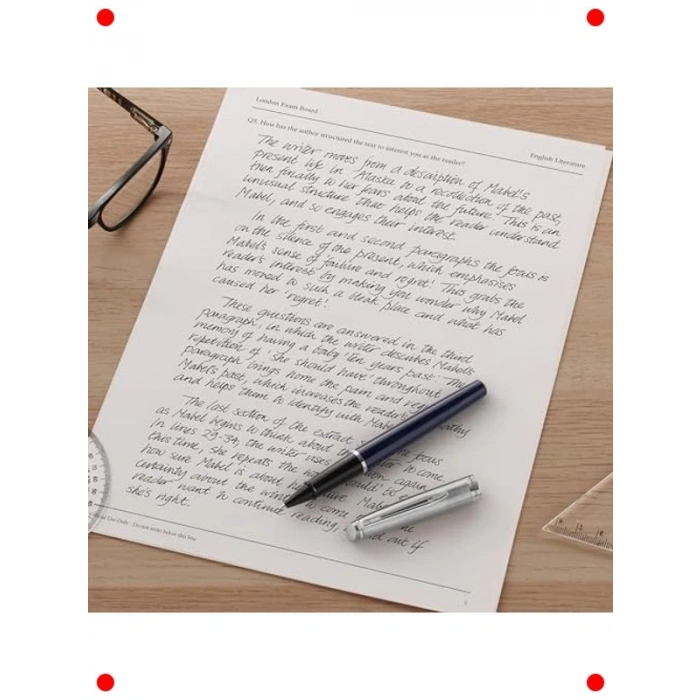 London Exam Board
English Literature
Q3. How has the author structured the text to interest you as the reader?
The writer moves from a description of Mabel's
present life in Alaska to a recollection of the past,
then finally to her fears about the future. This is an
unusual structure that helps the reader understand
Mabel, and so engages their interest.
In the first and second paragraphs the focus is
on the silence of the present, which emphasises
Mabel's sense of 'failure and regret'. This grabs the
reader's interest by making you wonder why Mabel
has moved to such a bleak place and what has
caused her 'regret'.
These questions are answered in the third
paragraph, in which the writer describes Mabel's
memory of having a baby 'ten years past'. The
repetition of 'she should have' throughout
paragraph brings home the pain and
Mabel's past, which increases the reader's
and helps them to identify with
The last section of the extract focus
as Mabel begins to think about to come.
In lines 29-34, the writer uses again
this time, she repeats the
how sure Mabel is about
certainty about the to come
reader want to continue reading, out if
she's right.
Use Only Do not write below this line